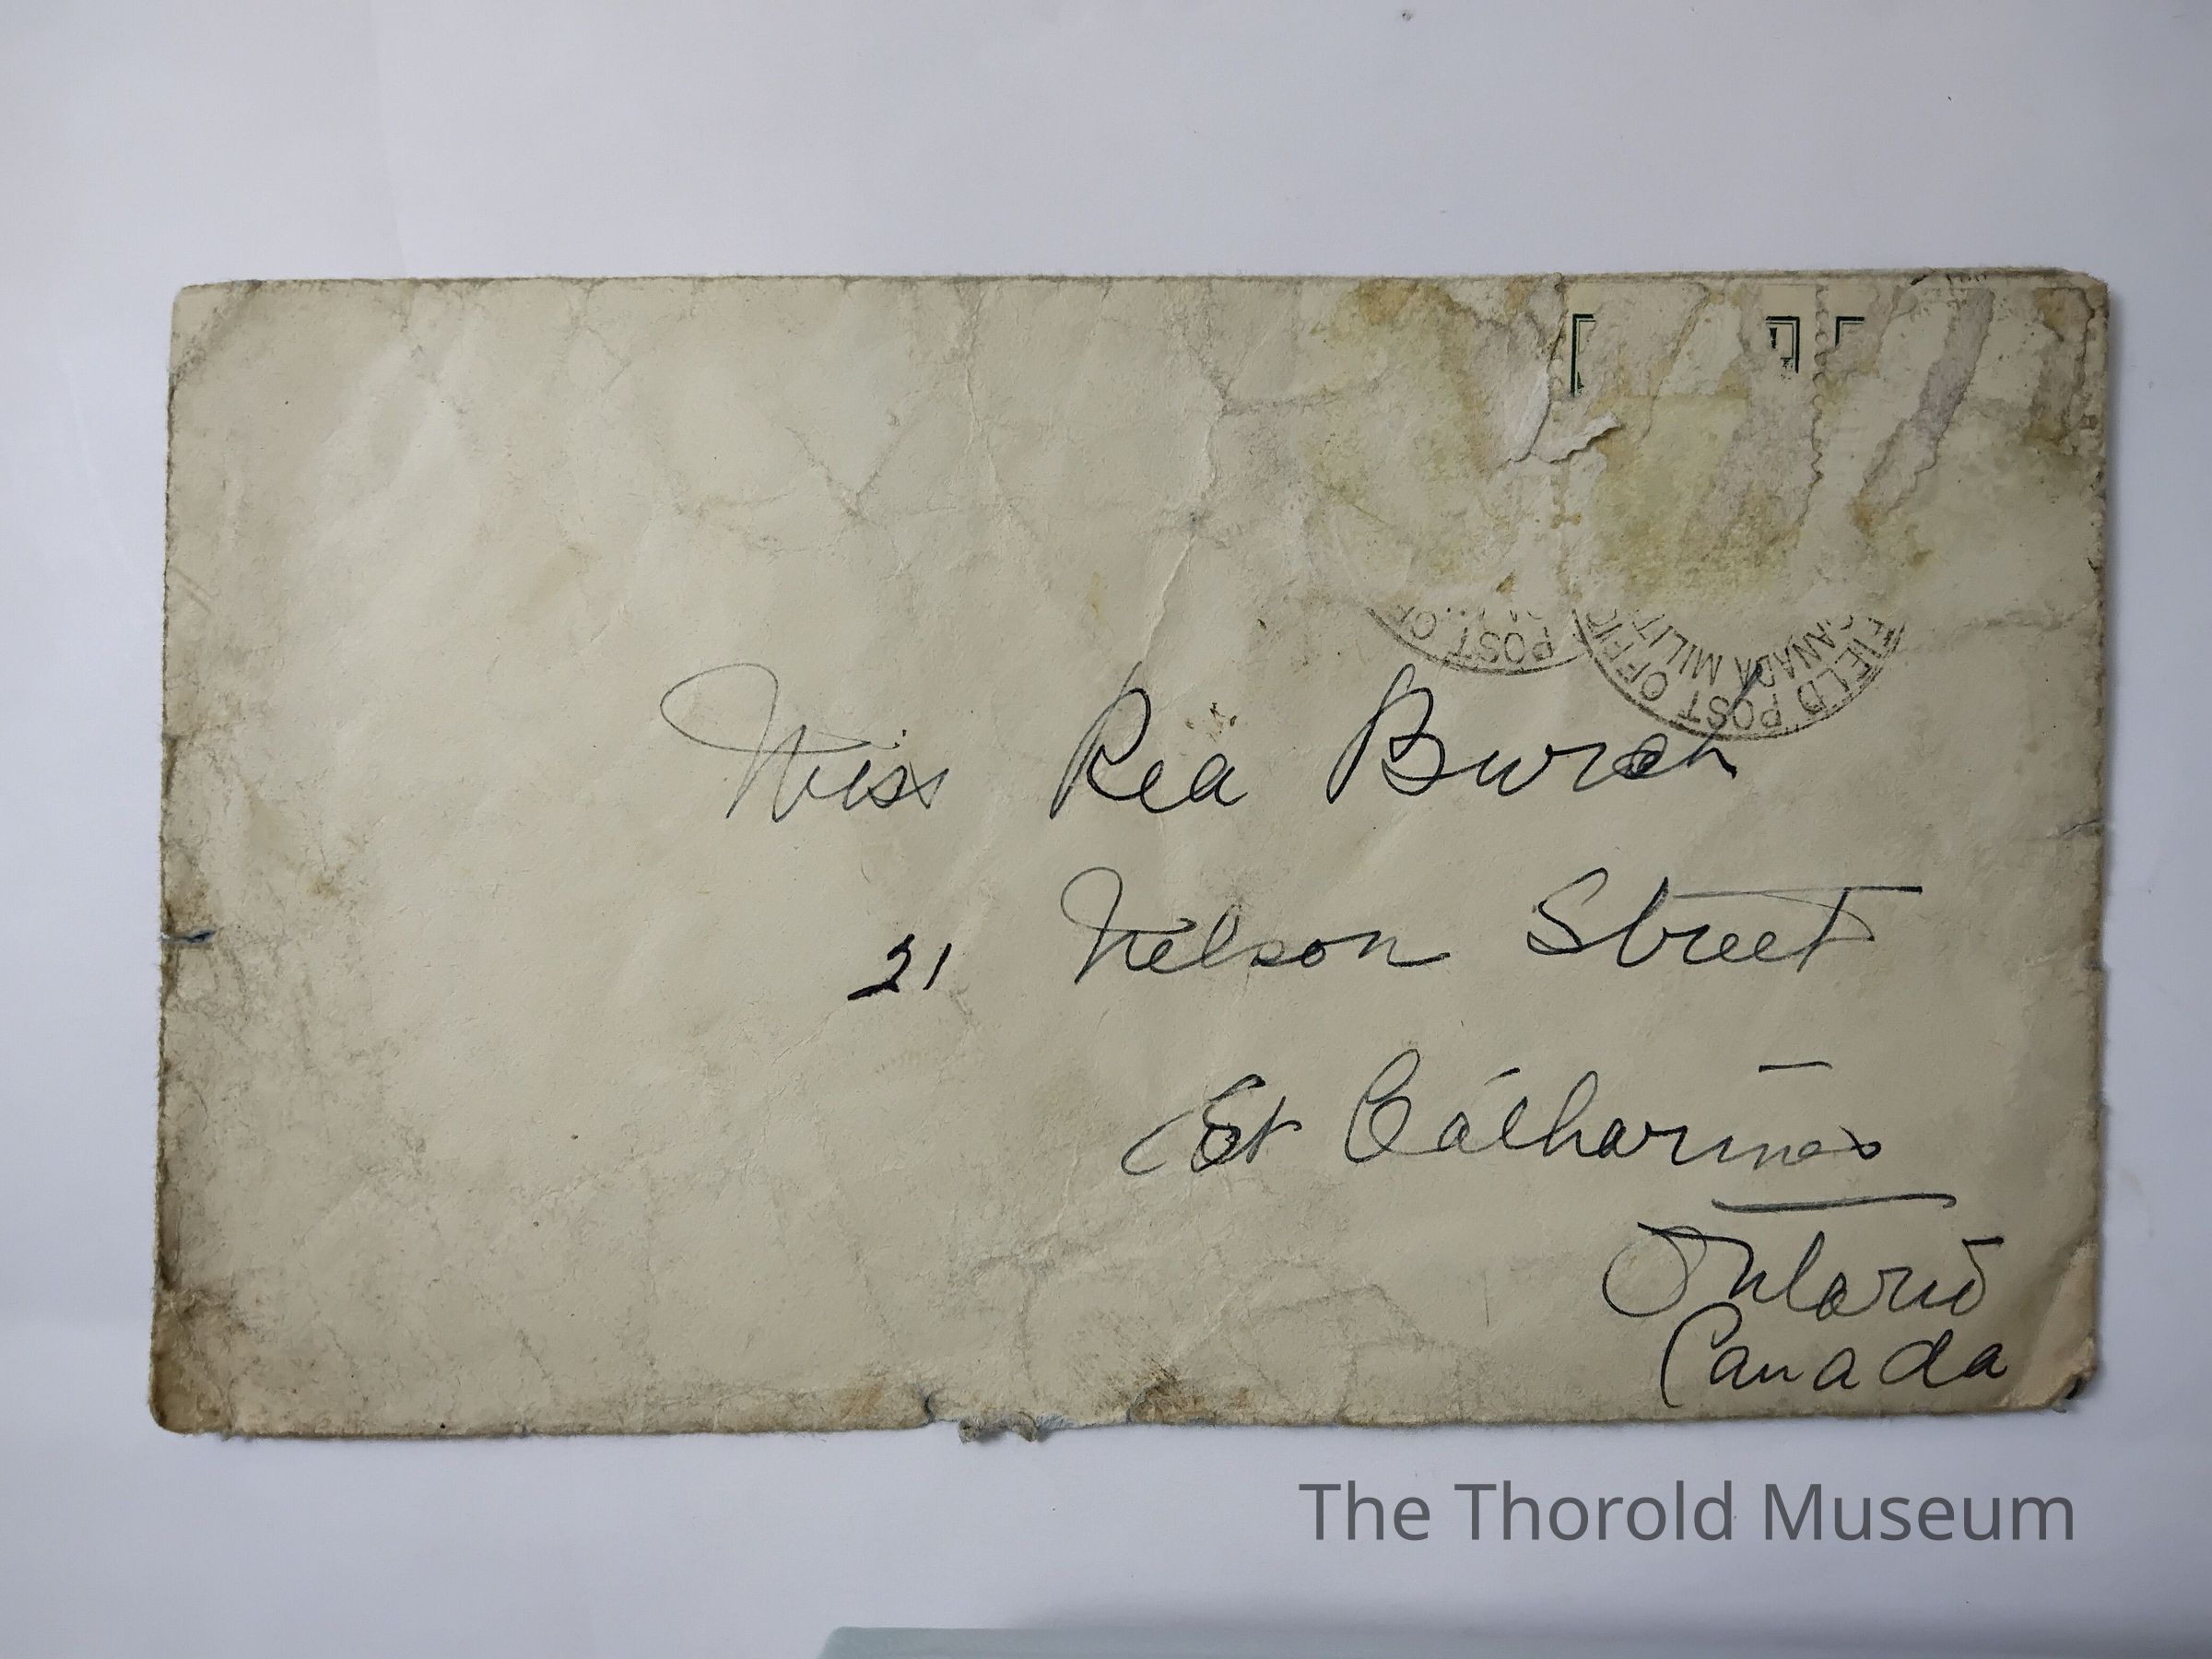 POST OF
FIELD POST OFFIC
CANADA MILIT
Miss Rea Burch
21 Nelson Street
St Catharines
Ontario
Canada
The Thorold Museum